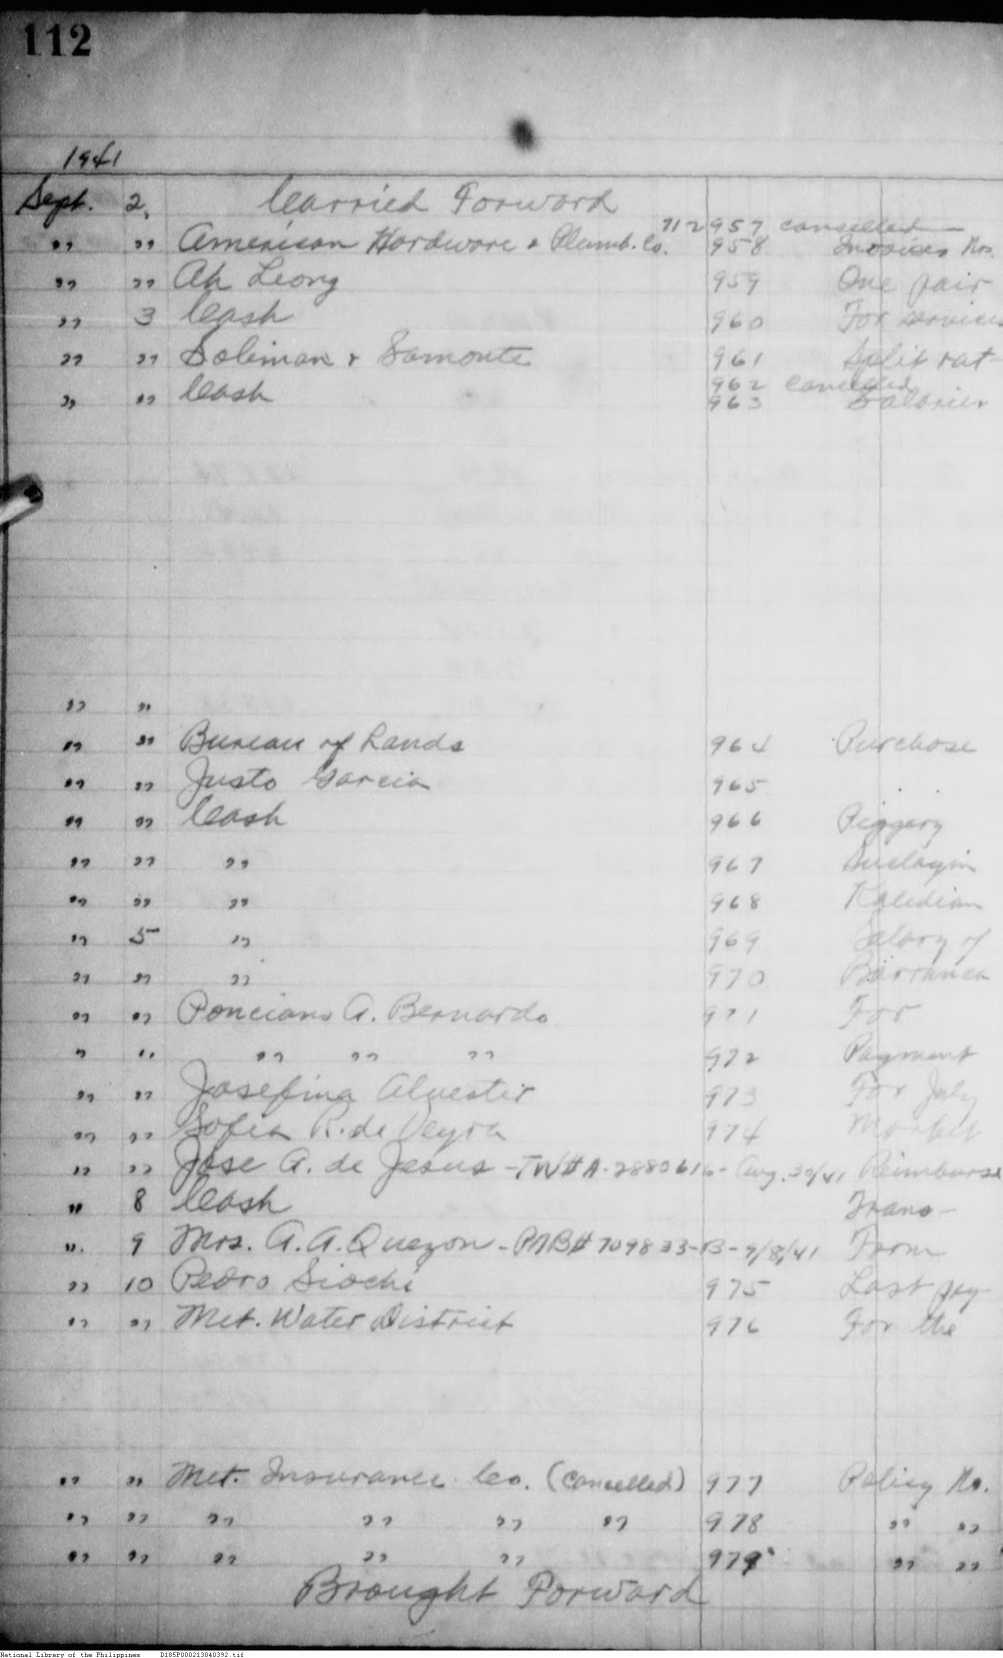 112
1941
Sept. 2, Carried Forward
712957 cancelled
" " American Hardware & Plumb. Co. 958 Invoices Nos.
" " Ah Leong 959 One pair
" 3 Cash 960 For services
" " Soliman & Samonte 961 Split rat
962 cancelled
" " Cash 963 Salaries
" "
" " Bureau of Lands 964 Purchase
" " Justo Garcia 965
" " Cash 966 Piggery
" " " 967
" " " 968
" 5 " 969 Salary of
" " " 970 Barranca
" " Ponciano A. Bernardo 971 For
" " " " " 972 Payment
" " Josefina Alvester 973 For July
" " Sofia R. de Veyra 974 Market
" " Jose A. de Jesus - TW# A-2880616 - Aug. 30/41 Reimburse
" 8 Cash Trans-
" 9 Mrs. A. A. Quezon - PNB# 709833-B - 9/8/41 From
" 10 Pedro Siochi 975 Last pay
" " Met. Water District 976 For the
" " Met. Insurance Co. (Cancelled) 977 Policy No.
" " " " " " 978 " "
" " " " " 979 " "
Brought Forward
National Library of the Philippines D185P000213040392.tif